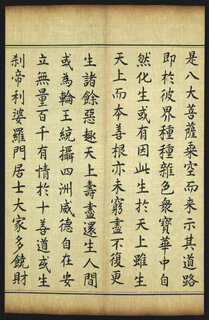 是八大菩薩乘空而來示其道路
即於彼界種種雜色衆寶華中自
然化生或有因此生於天上雖生
天上而本善根亦未窮盡不復更
生諸餘惡趣天上壽盡還生人間
或為輪王統攝四洲威德自在安
立無量百千有情於十善道或生
剎帝利婆羅門居士大家多饒財